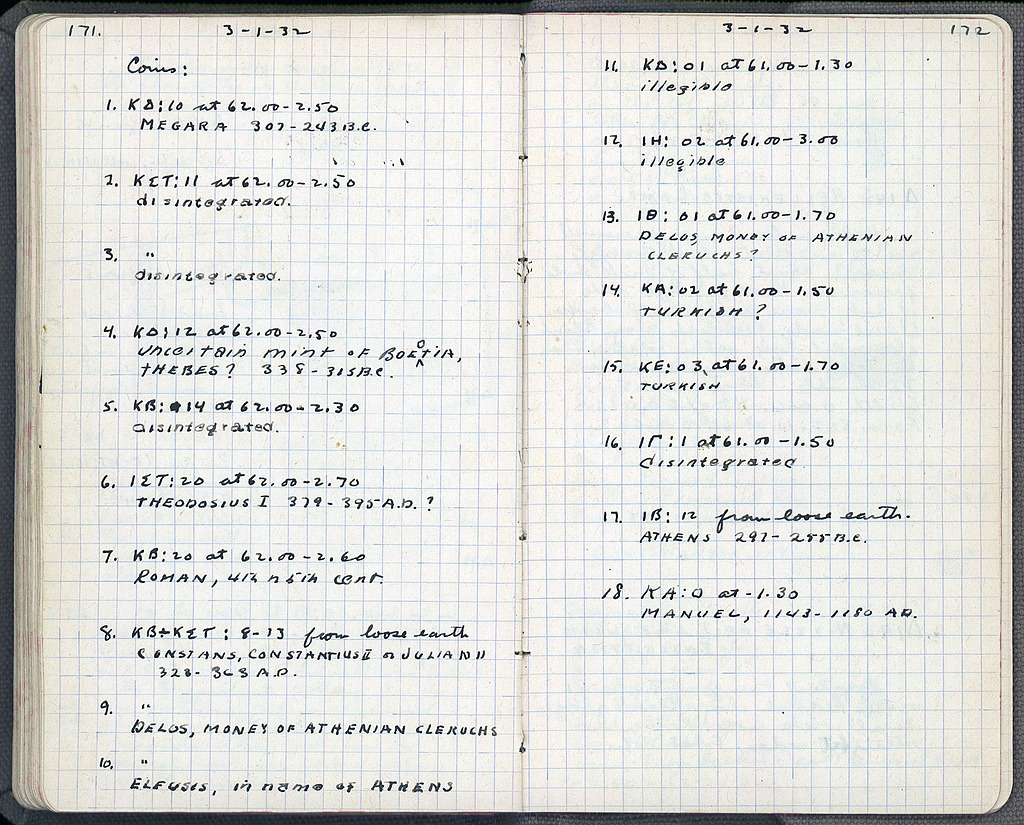 171. 3-1-32
Coins:
1. ΚΔ:10 at 62.00-2.50
MEGARA 307-243 B.C.
2. ΚΣΤ:11 at 62.00-2.50
disintegrated.
3. "
disintegrated.
4. ΚΔ:12 at 62.00-2.50
uncertain mint of BOEOTIA,
THEBES? 338-315 B.C.
5. ΚΒ:14 at 62.00-2.30
disintegrated.
6. ΙΣΤ:20 at 62.00-2.70
THEODOSIUS I 379-395 A.D.?
7. ΚΒ:20 at 62.00-2.60
ROMAN, 4th 5th cent.
8. ΚΒ÷ΚΣΤ: 8-13 from loose earth
CONSTANS, CONSTANTIUS II or JULIAN II
323-363 A.D.
9. "
DELOS, MONEY OF ATHENIAN CLERUCHS
10. "
ELEUSIS, in name of ATHENS
3-1-32 172
11. ΚΔ:01 at 61.00-1.30
illegible
12. ΙΗ: 02 at 61.00-3.00
illegible
13. ΙΘ: 01 at 61.00-1.70
DELOS, MONEY OF ATHENIAN
CLERUCHS?
14. ΚΑ:02 at 61.00-1.50
TURKISH?
15. ΚΕ:03 at 61.00-1.70
TURKISH
16. ΙΓ:1 at 61.00-1.50
disintegrated
17. ΙΒ: 12 from loose earth.
ATHENS 297-255 B.C.
18. ΚΑ:0 at -1.30
MANUEL, 1143-1180 AD.